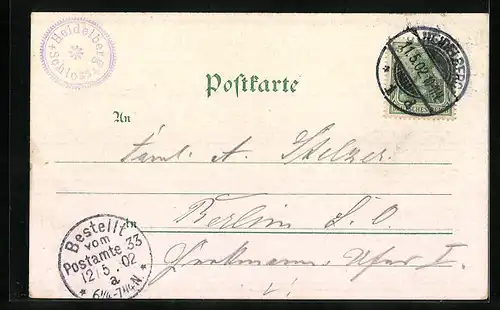 Heidelberg Schloss
HEIDELBERG
11.5.02
Postkarte
An
A. Stelzer
in
Berlin S. O.
Ufer I.
Bestellt
vom
Postamte 33
12/5.02
a
6¼-7¼N